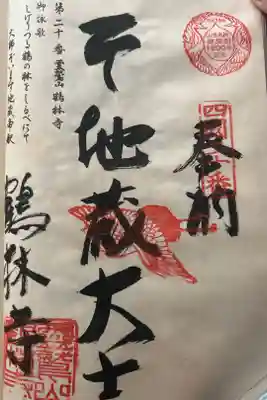 奉納
四国二十番
地蔵大士
鶴林寺
第二十番 霊鷲山 鶴林寺
御詠歌
しげりつる鶴の林をしるべにて
大師ぞいます地蔵帝釈